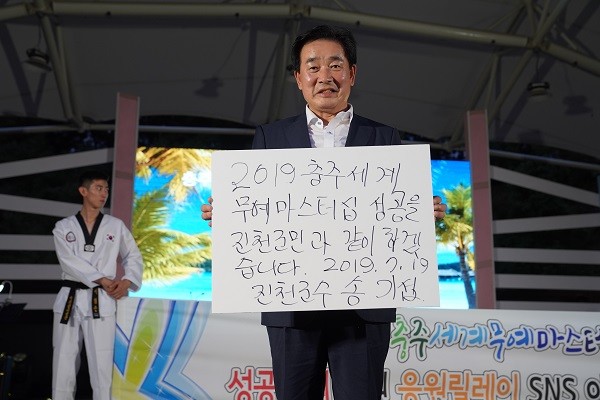 2019 충주세계
무예마스터십 성공을
진천군민과 같이 하겠
습니다. 2019. 7. 19
진천군수 송 기섭
충주세계무예마스터
성공 응원릴레이 SNS 이